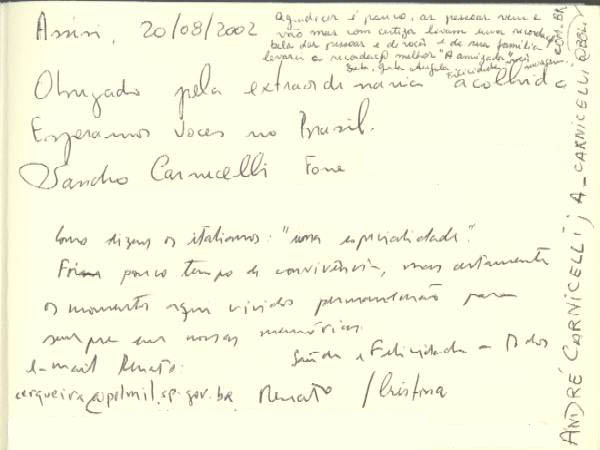 Assisi, 20/08/2002
Agradecer é pouco, as pessoas vem e
vão mas com certeza levam uma recordação
bela das pessoas e de vocês e de sua família
levarei a recordação melhor "A amizade"
Felicidades
Obrigado pela extraordinaria acolhida
Esperamos voces no Brasil.
Sandro Carnicelli Fone
Como dizem os italianos: "uma especialidade".
Foi pouco tempo de convivência, mas certamente
os momentos aqui vividos permanecerão para
sempre em nossas memórias.
Saúde e Felicidade a todos
e-mail Renato:
cerqueira@polmil.sp.gov.br Renato / Cristina
ANDRÉ CARNICELLI; A_CARNICELLI@BOL.COM.BR